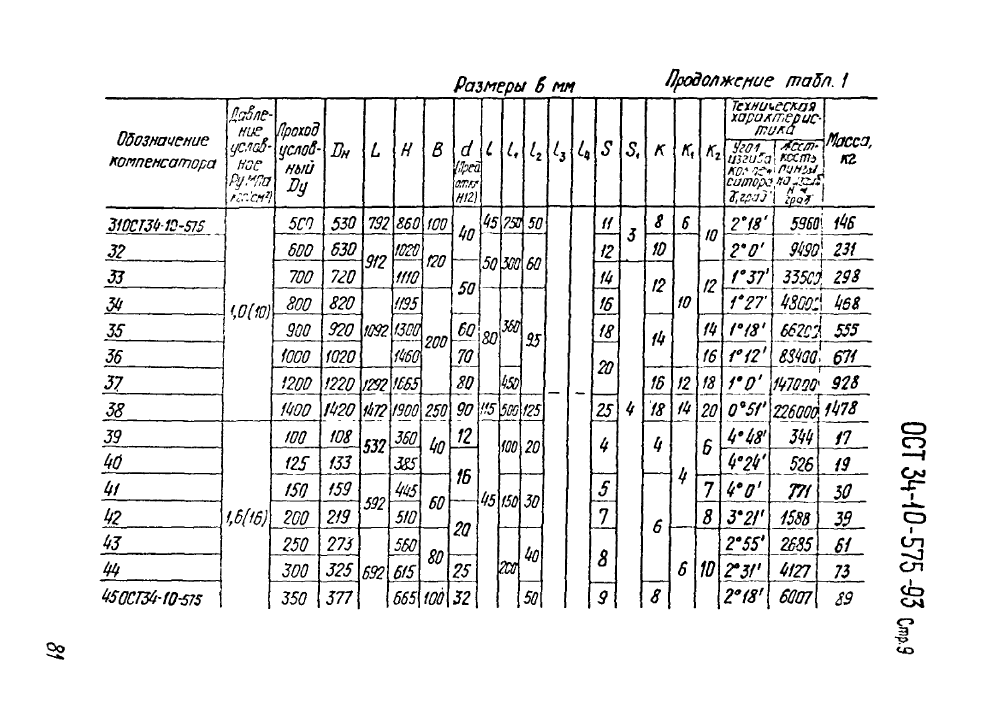 Размеры в мм
Продолжение табл. 1
Обозначение компенсатора | Давление условное Ру, МПа (кгс/см²) | Проход условный Dу | Dн | L | H | B | d (Пред. откл. H12) | l | l₁ | l₂ | l₃ | l₄ | S | S₁ | K | K₁ | K₂ | Техническая характеристика | Масса, кг
Угол изгиба компенсатора γ, град | Жесткость
31 ОСТ34-10-575 | 1,0(10) | 500 | 530 | 792 | 860 | 100 | 40 | 45 | 250 | 50 | – | – | 11 | 3 | 8 | 6 | 10 | 2°18' | 5960 | 146
32 | 600 | 630 | 912 | 1020 | 120 | 50 | 300 | 60 | 12 | 10 | 10 | 2°0' | 9490 | 231
33 | 700 | 720 | 1110 | 50 | 14 | 4 | 12 | 12 | 1°37' | 33500 | 298
34 | 800 | 820 | 1092 | 1195 | 200 | 80 | 360 | 95 | 16 | 1°27' | 48000 | 468
35 | 900 | 920 | 1300 | 60 | 18 | 14 | 14 | 1°18' | 66200 | 555
36 | 1000 | 1020 | 1460 | 70 | 20 | 16 | 1°12' | 83400 | 671
37 | 1200 | 1220 | 1292 | 1665 | 80 | 450 | 16 | 12 | 18 | 1°0' | 147000 | 928
38 | 1400 | 1420 | 1472 | 1900 | 250 | 90 | 115 | 500 | 125 | 25 | 18 | 14 | 20 | 0°51' | 226000 | 1478
39 | 1,6(16) | 100 | 108 | 532 | 360 | 40 | 12 | 45 | 100 | 20 | 4 | 4 | 4 | 6 | 4°48' | 344 | 17
40 | 125 | 133 | 385 | 16 | 4°24' | 526 | 19
41 | 150 | 159 | 592 | 445 | 60 | 150 | 30 | 5 | 6 | 7 | 4°0' | 771 | 30
42 | 200 | 219 | 510 | 20 | 7 | 8 | 3°21' | 1588 | 39
43 | 250 | 273 | 692 | 560 | 80 | 200 | 40 | 8 | 6 | 10 | 2°55' | 2685 | 61
44 | 300 | 325 | 615 | 25 | 2°31' | 4127 | 73
45 ОСТ34-10-575 | 350 | 377 | 665 | 100 | 32 | 50 | 9 | 8 | 2°18' | 6007 | 89
ОСТ 34-10-575-93 Стр.9
81